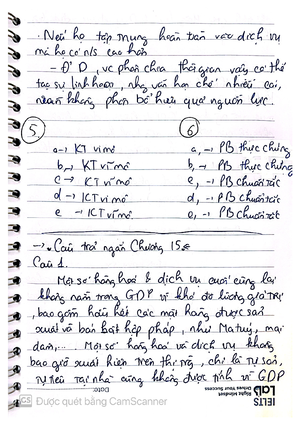 . Nếu họ tập trung hoàn toàn vào dịch vụ
mà họ có n/s cao hơn
– Ở D, vc phân chia thời gian vậy có thể
tạo sự linh hoạt, nhg vẫn hạn chế nhiều cái,
nhằm không phân bổ hiệu quả nguồn lực.
5
6
a → KT vi mô
a, → PB thực chứng
b, → KT vĩ mô
b, → PB thực chứng
c → KT vi mô
c, → PB chuẩn tắc
d → KT vĩ mô
d, → PB chuẩn tắc
e → KT vĩ mô
e, → PB chuẩn tắc
→ . Câu trả ngắn Chương 15
Câu 1.
Một số hàng hoá & dịch vụ cuối cùng lại
không nằm trong GDP vì khó đo lường giá trị,
bao gồm hầu hết các mặt hàng được sản
xuất và bán bất hợp pháp, như Ma tuý, mại
dâm,... Một số hàng hoá và dịch vụ không
bao giờ xuất hiện trên thị trg, chỉ là tự sản,
tự tiêu tại nhà cũng không được tính vì GDP
IELTS
Lab
Right Mindset
Unlock Your Success
Date
CS Được quét bằng CamScanner